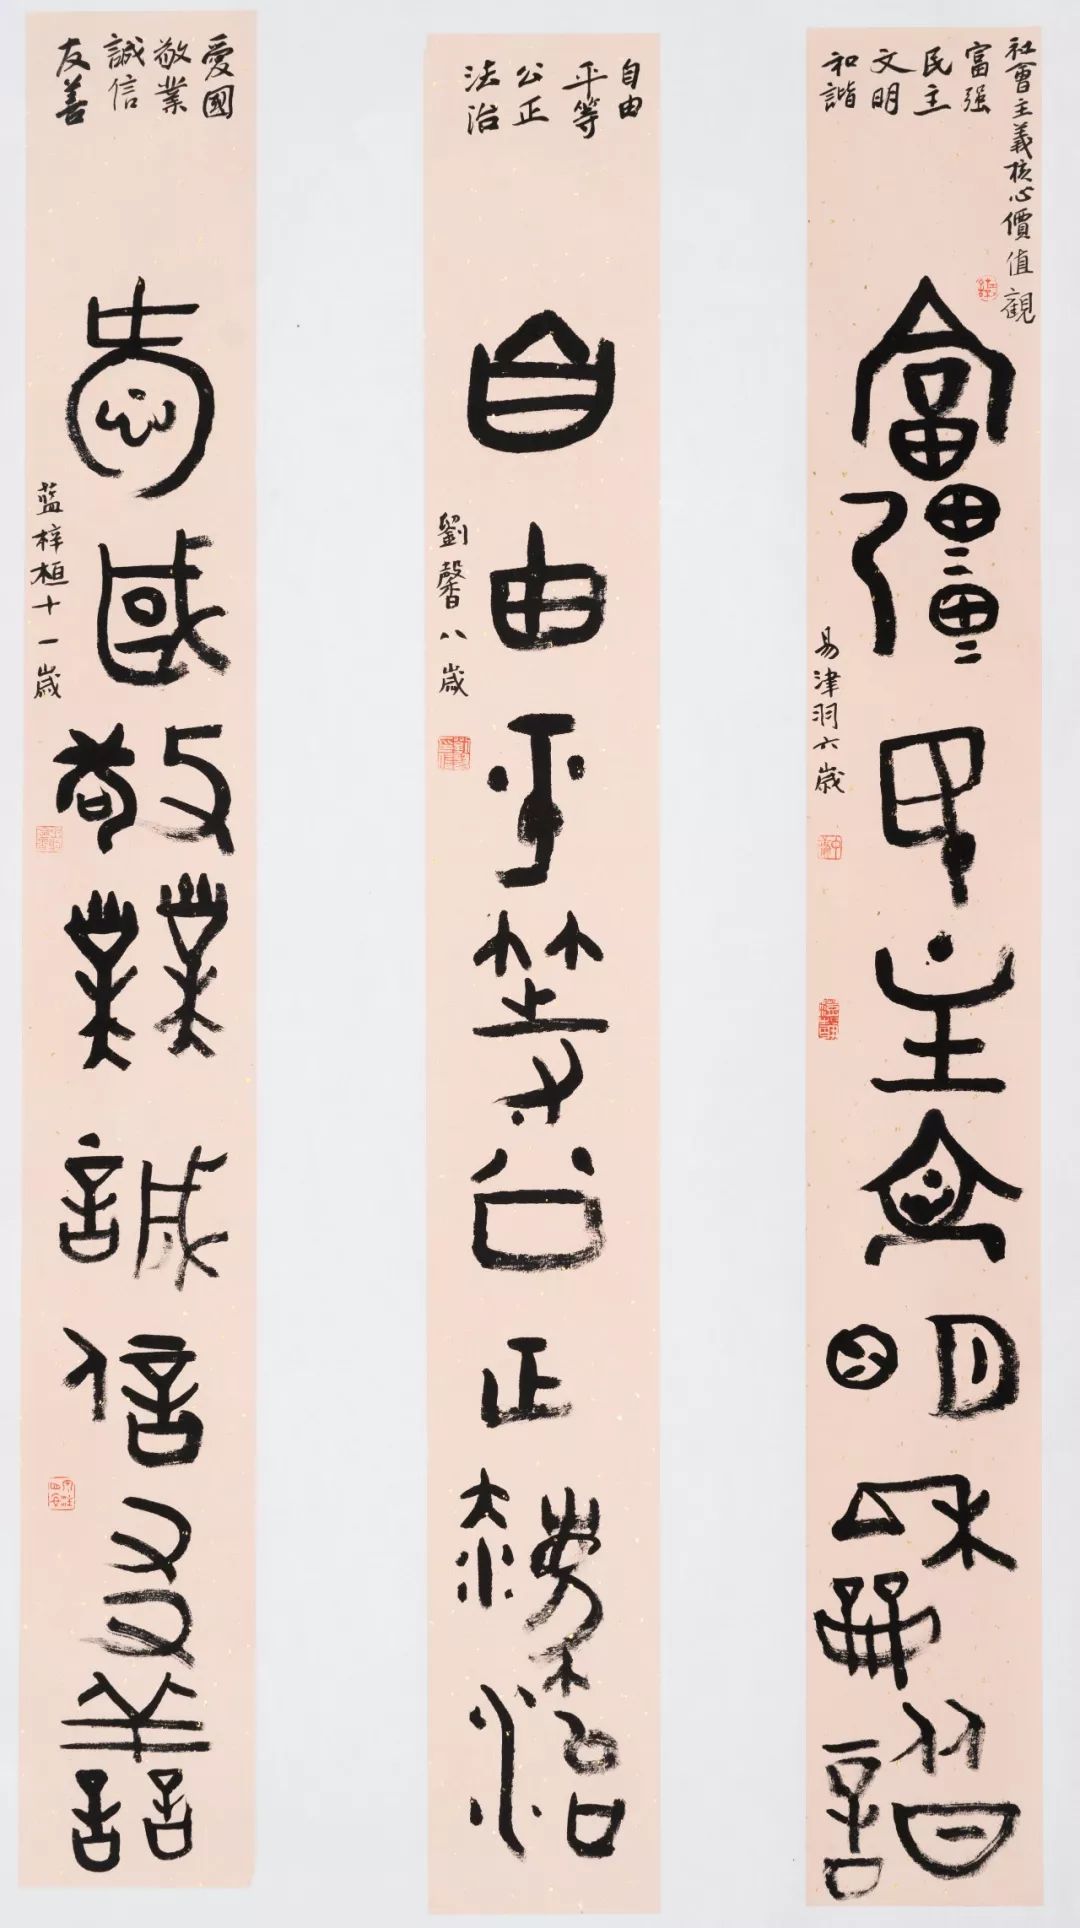 社會主義核心價值觀
富强
民主
文明
和諧
富彊民主文明龢諧
易津羽六歲
自由
平等
公正
法治
自由平等公正灋治
劉馨八歲
愛國
敬業
誠信
友善
愛國敬業誠信友善
藍梓桓十一歲